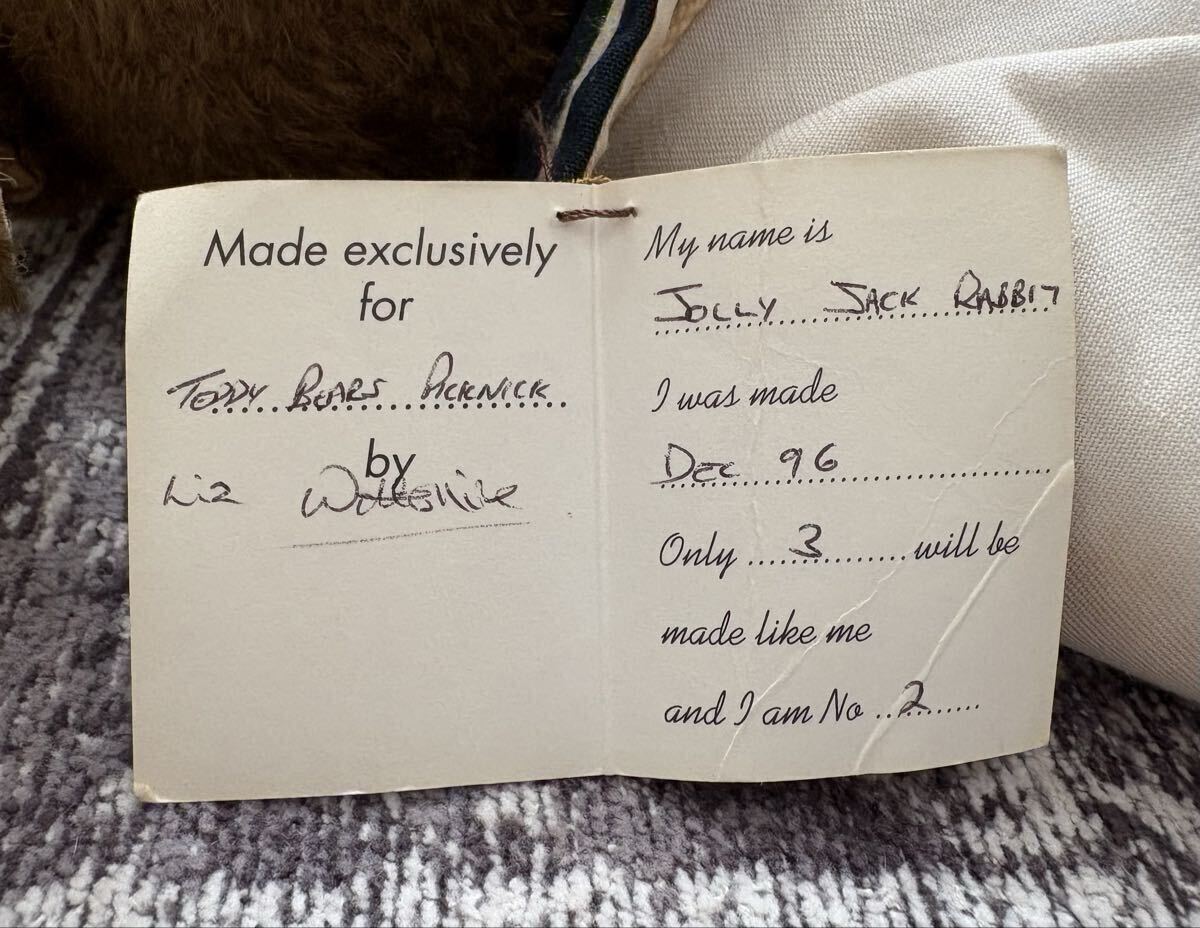 Made exclusively
for
TEDDY BEARS PICKNICK
by
Liz
My name is
JOLLY JACK RABBIT
I was made
DEC 96
Only 3 will be
made like me
and I am No 2